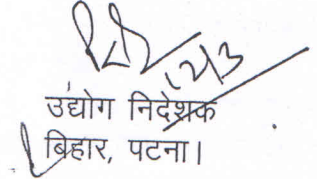 12/3
उद्योग निदेशक
बिहार, पटना।